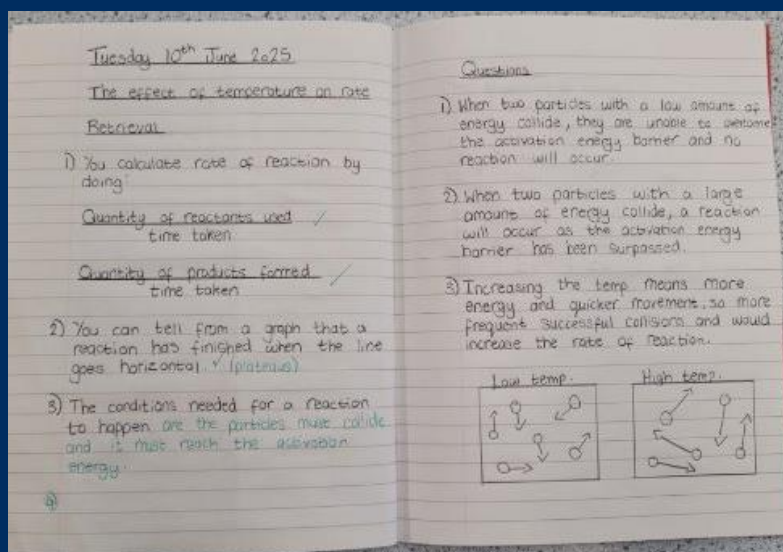 Tuesday 10th June 2025
The effect of temperature on rate
Retrieval
1) You calculate rate of reaction by
doing:
Quantity of reactants used ✓
time taken
Quantity of products formed ✓
time taken
2) You can tell from a graph that a
reaction has finished when the line
goes horizontal. ✓ (plateaus)
3) The conditions needed for a reaction
to happen are the particles must collide
and it must reach the activation
energy.
4)
Questions
1) When two particles with a low amount of
energy collide, they are unable to overcome
the activation energy barrier and no
reaction will occur.
2) When two particles with a large
amount of energy collide, a reaction
will occur as the activation energy
barrier has been surpassed.
3) Increasing the temp means more
energy and quicker movement, so more
frequent successful collisions and would
increase the rate of reaction.
Low temp.
High temp.